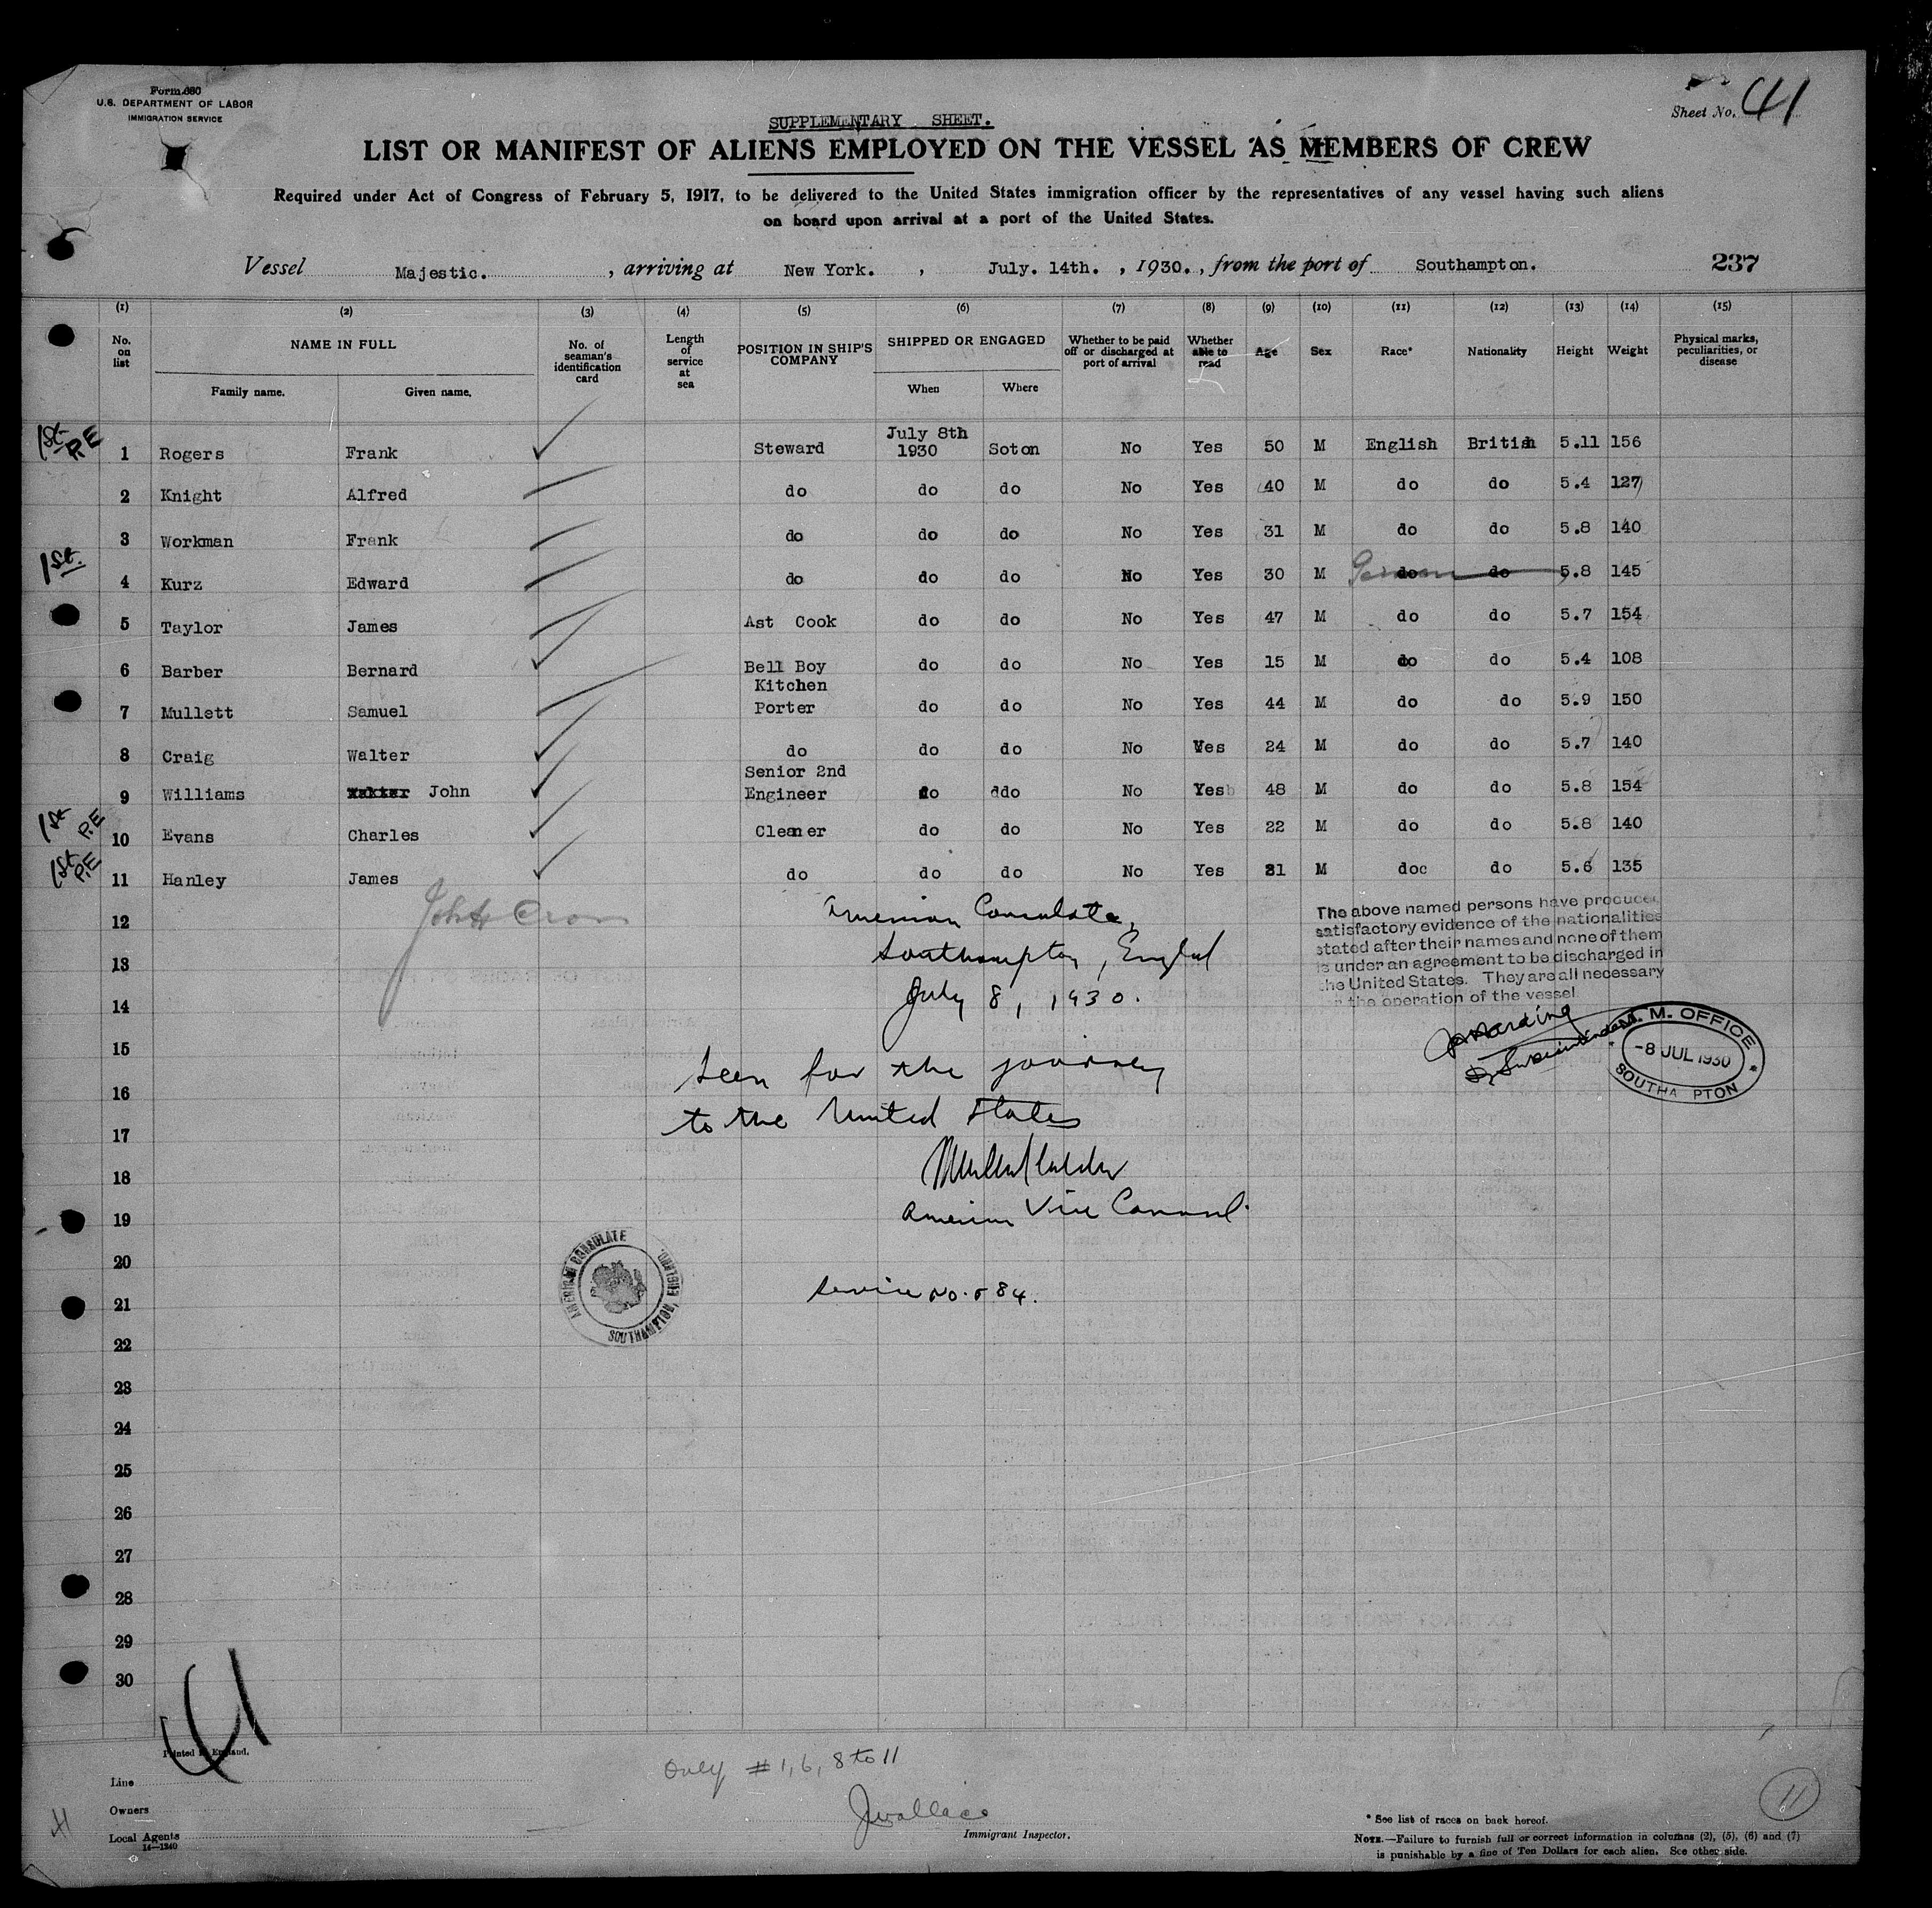 Form 680
U.S. DEPARTMENT OF LABOR
IMMIGRATION SERVICE
Sheet No. 41
SUPPLEMENTARY SHEET.
LIST OR MANIFEST OF ALIENS EMPLOYED ON THE VESSEL AS MEMBERS OF CREW
Required under Act of Congress of February 5, 1917, to be delivered to the United States immigration officer by the representatives of any vessel having such aliens
on board upon arrival at a port of the United States.
Vessel Majestic. , arriving at New York. , July. 14th. , 1930. , from the port of Southampton. 237
(1) (2) (3) (4) (5) (6) (7) (8) (9) (10) (11) (12) (13) (14) (15)
No. on list NAME IN FULL Family name. Given name. No. of seaman's identification card Length of service at sea POSITION IN SHIP'S COMPANY SHIPPED OR ENGAGED When Where Whether to be paid off or discharged at port of arrival Whether able to read Age Sex Race* Nationality Height Weight Physical marks, peculiarities, or disease
1st P.E 1 Rogers Frank Steward July 8th 1930 Soton No Yes 50 M English British 5.11 156
2 Knight Alfred do do do No Yes 40 M do do 5.4 127
3 Workman Frank do do do No Yes 31 M do do 5.8 140
1st. 4 Kurz Edward do do do No Yes 30 M German do do 5.8 145
5 Taylor James Ast Cook do do No Yes 47 M do do 5.7 154
6 Barber Bernard Bell Boy do do No Yes 15 M do do 5.4 108
7 Mullett Samuel Kitchen Porter do do No Yes 44 M do do 5.9 150
8 Craig Walter do do do No Yes 24 M do do 5.7 140
9 Williams John Senior 2nd Engineer do ddo No Yes 48 M do do 5.8 154
1st P.E 10 Evans Charles Cleaner do do No Yes 22 M do do 5.8 140
1st P.E 11 Hanley James do do do No Yes 31 M doc do 5.6 135
12
13
14
15
16
17
18
19
20
21
22
23
24
25
26
27
28
29
30
American Consulate,
Southampton, England
July 8, 1930.
Seen for the journey
to the United States
American Vice Consul.
Service No. 584.
The above named persons have produced
satisfactory evidence of the nationalities
stated after their names and none of them
is under an agreement to be discharged in
the United States. They are all necessary
the operation of the vessel
M. M. OFFICE
-8 JUL 1930
SOUTHA PTON
AMERICAN CONSULATE
SOUTHAMPTON, ENGLAND.
41
Printed in England.
Line
Owners
Local Agents
14—1240
Only # 1, 6, 8 to 11
J Wallace
Immigrant Inspector.
11
* See list of races on back hereof.
NOTE.—Failure to furnish full or correct information in columns (2), (5), (6) and (7)
is punishable by a fine of Ten Dollars for each alien. See other side.